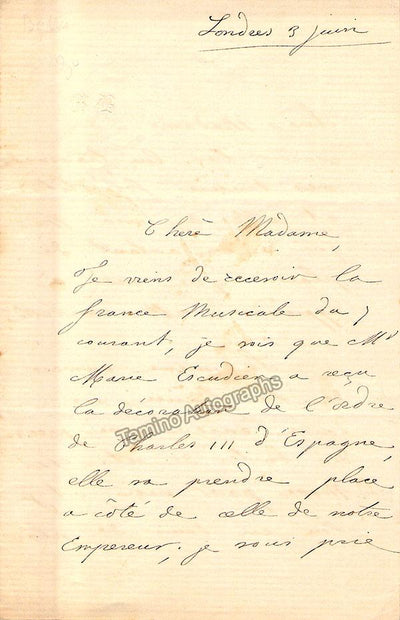 Londres 3 juin
Chère Madame,
Je viens de recevoir la
france Musicale du 7
courant, je vois que Mr
Marie Escudier a reçu
la décoration de l'ordre
de Charles III d'Espagne,
elle va prendre place
a côté de celle de notre
Empereur, je vous prie
Tamino Autographs